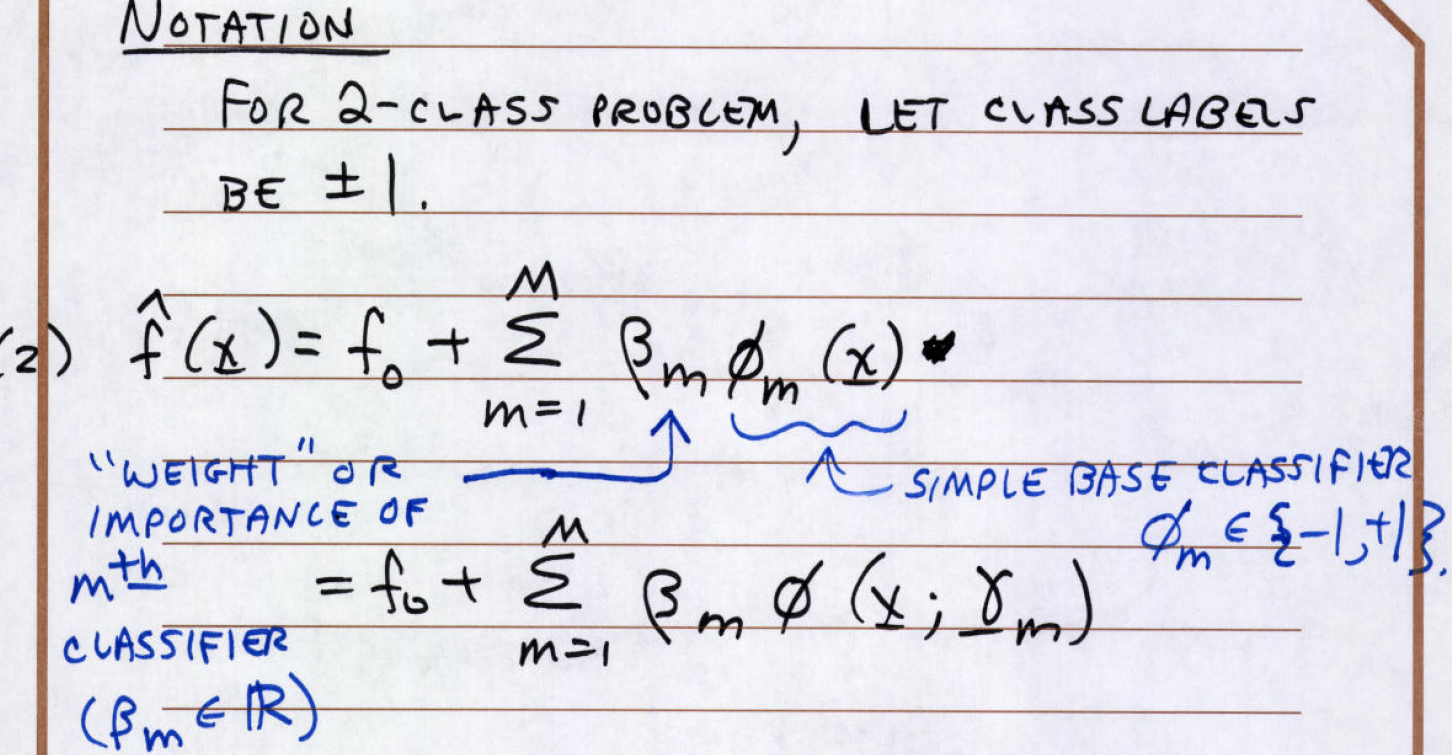 NOTATION
FOR 2-CLASS PROBLEM, LET CLASS LABELS
BE ±1.
(2) f̂(x̲) = f₀ + Σ_{m=1}^{M} β_m ϕ_m (x̲)
"WEIGHT" OR
IMPORTANCE OF
m^{th}
CLASSIFIER
(β_m ∈ ℝ)
SIMPLE BASE CLASSIFIER
ϕ_m ∈ {-1,+1}.
= f₀ + Σ_{m=1}^{M} β_m ϕ (x̲; γ̲_m)